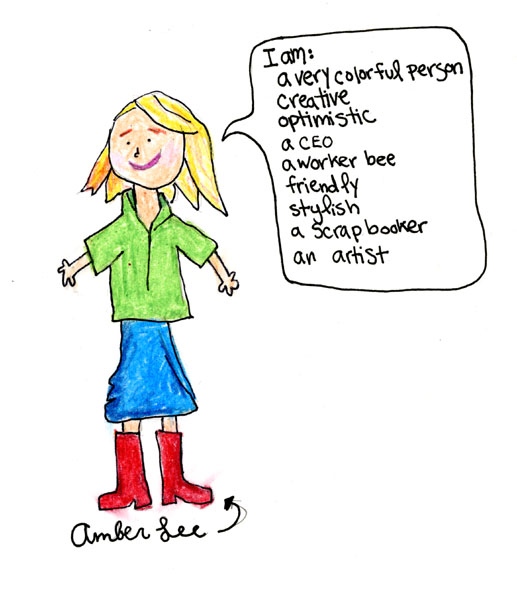 I am:
a very colorful person
creative
optimistic
a CEO
a worker bee
friendly
stylish
a scrapbooker
an artist
Amber Lee